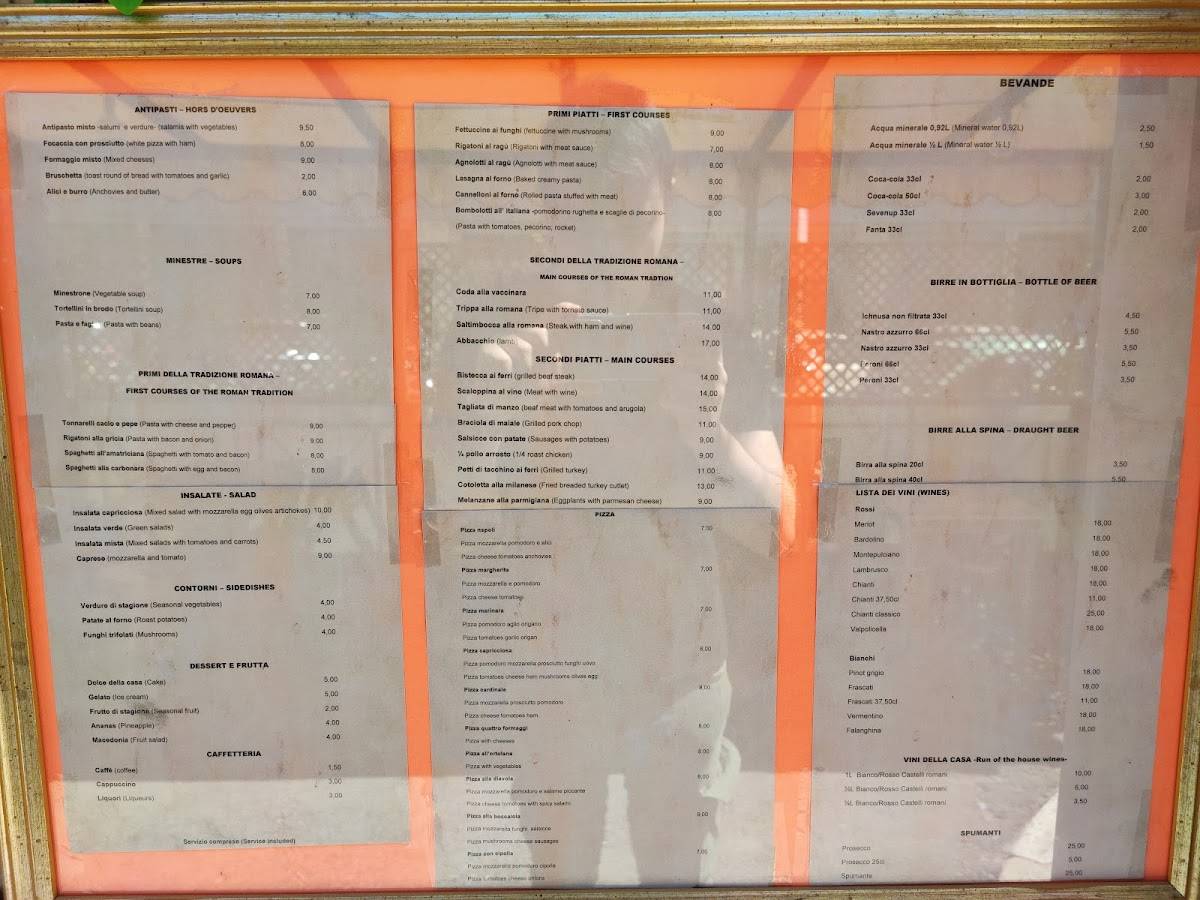 ANTIPASTI – HORS D'OEUVERS
Antipasto misto -salumi e verdure- (salamis with vegetables) 9,50
Focaccia con prosciutto (white pizza with ham) 8,00
Formaggio misto (Mixed cheeses) 9,00
Bruschetta (toast round of bread with tomatoes and garlic) 2,00
Alici e burro (Anchovies and butter) 6,00
MINESTRE – SOUPS
Minestrone (Vegetable soup) 7,00
Tortellini in brodo (Tortellini soup) 8,00
Pasta e (Pasta with beans) 7,00
PRIMI DELLA TRADIZIONE ROMANA –
FIRST COURSES OF THE ROMAN TRADITION
Tonnarelli cacio e pepe (Pasta with cheese and pepper) 9,00
Rigatoni alla gricia (Pasta with bacon and onion) 9,00
Spaghetti all'amatriciana (Spaghetti with tomato and bacon) 8,00
Spaghetti alla carbonara (Spaghetti with egg and bacon) 8,00
INSALATE - SALAD
Insalata capricciosa (Mixed salad with mozzarella egg olives artichokes) 10,00
Insalata verde (Green salads) 4,00
Insalata mista (Mixed salads with tomatoes and carrots) 4,50
Caprese (mozzarella and tomato) 9,00
CONTORNI – SIDEDISHES
Verdure di stagione (Seasonal vegetables) 4,00
Patate al forno (Roast potatoes) 4,00
Funghi trifolati (Mushrooms) 4,00
DESSERT E FRUTTA
Dolce della casa (Cake) 5,00
Gelato (Ice cream) 5,00
Frutto di stagione (Seasonal fruit) 2,00
Ananas (Pineapple) 4,00
Macedonia (Fruit salad) 4,00
CAFFETTERIA
Caffè (coffee) 1,50
Cappuccino 3,00
Liquori (Liqueurs) 3,00
Servizio compreso (Service included)
PRIMI PIATTI – FIRST COURSES
Fettuccine ai funghi (fettuccine with mushrooms) 9,00
Rigatoni al ragù (Rigatoni with meat sauce) 7,00
Agnolotti al ragù (Agnolotti with meat sauce) 8,00
Lasagna al forno (Baked creamy pasta) 8,00
Cannelloni al forno (Rolled pasta stuffed with meat) 8,00
Bombolotti all' italiana -pomodorino rughetta e scaglie di pecorino- 8,00
(Pasta with tomatoes, pecorino, rocket)
SECONDI DELLA TRADIZIONE ROMANA –
MAIN COURSES OF THE ROMAN TRADTION
Coda alla vaccinara 11,00
Trippa alla romana (Tripe with tomato sauce) 11,00
Saltimbocca alla romana (Steak with ham and wine) 14,00
Abbacchio (lamb) 17,00
SECONDI PIATTI – MAIN COURSES
Bistecca ai ferri (grilled beaf steak) 14,00
Scaloppina al vino (Meat with wine) 14,00
Tagliata di manzo (beaf meat with tomatoes and arugola) 15,00
Braciola di maiale (Grilled pork chop) 11,00
Salsicce con patate (Sausages with potatoes) 9,00
¼ pollo arrosto (1/4 roast chicken) 9,00
Petti di tacchino ai ferri (Grilled turkey) 11,00
Cotoletta alla milanese (Fried breaded turkey cutlet) 13,00
Melanzane alla parmigiana (Eggplants with parmesan cheese) 9,00
PIZZA
Pizza napoli 7,00
Pizza mozzarella pomodoro e alici
Pizza cheese tomatoes anchovies
Pizza margherita 7,00
Pizza mozzarella e pomodoro
Pizza cheese tomatoes
Pizza marinara 7,00
Pizza pomodoro aglio origano
Pizza tomatoes garlic origan
Pizza capricciosa 8,00
Pizza pomodoro mozzarella prosciutto funghi uovo
Pizza tomatoes cheese ham mushrooms olives egg
Pizza cardinale 8,00
Pizza mozzarella prosciutto pomodoro
Pizza cheese tomatoes ham
Pizza quattro formaggi 8,00
Pizza with cheeses
Pizza all'ortolana 8,00
Pizza with vegetables
Pizza alla diavola 8,00
Pizza mozzarella pomodoro e salame piccante
Pizza cheese tomatoes with spicy salami
Pizza alla boscaiola 9,00
Pizza mozzarella funghi, salsicce
Pizza mushrooms cheese sausages
Pizza con cipolla 7,00
Pizza mozzarella pomodoro cipolla
Pizza tomatoes cheese onions
BEVANDE
Acqua minerale 0,92L (Mineral water 0,92L) 2,50
Acqua minerale ½ L (Mineral water ½ L) 1,50
Coca-cola 33cl 2,00
Coca-cola 50cl 3,00
Sevenup 33cl 2,00
Fanta 33cl 2,00
BIRRE IN BOTTIGLIA – BOTTLE OF BEER
Ichnusa non filtrata 33cl 4,50
Nastro azzurro 66cl 5,50
Nastro azzurro 33cl 3,50
Peroni 66cl 5,50
Peroni 33cl 3,50
BIRRE ALLA SPINA – DRAUGHT BEER
Birra alla spina 20cl 3,50
Birra alla spina 40cl 5,50
LISTA DEI VINI (WINES)
Rossi
Merlot 18,00
Bardolino 18,00
Montepulciano 18,00
Lambrusco 18,00
Chianti 18,00
Chianti 37,50cl 11,00
Chianti classico 25,00
Valpolicella 18,00
Bianchi
Pinot grigio 18,00
Frascati 18,00
Frascati 37,50cl 11,00
Vermentino 18,00
Falanghina 18,00
VINI DELLA CASA -Run of the house wines-
1L Bianco/Rosso Castelli romani 10,00
½L Bianco/Rosso Castelli romani 6,00
¼L Bianco/Rosso Castelli romani 3,50
SPUMANTI
Prosecco 25,00
Prosecco 25cl 5,00
Spumante 25,00